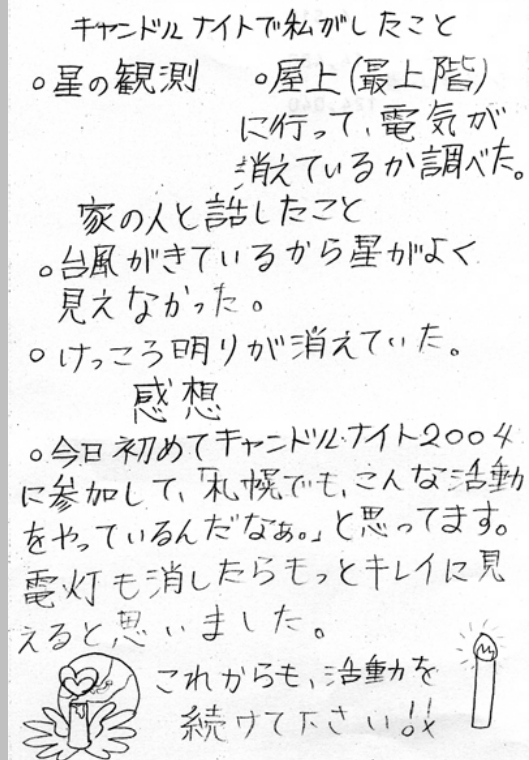 キャンドルナイトで私がしたこと
○星の観測 ○屋上(最上階)
に行って、電気が
消えているか調べた。
家の人と話したこと
○台風がきているから星がよく
見えなかった。
○けっこう明りが消えていた。
感想
○今日初めてキャンドルナイト2004
に参加して、「札幌でも、こんな活動
をやっているんだなぁ。」と思ってます。
電灯も消したらもっとキレイに見
えると思いました。
これからも、活動を
続けて下さい!!